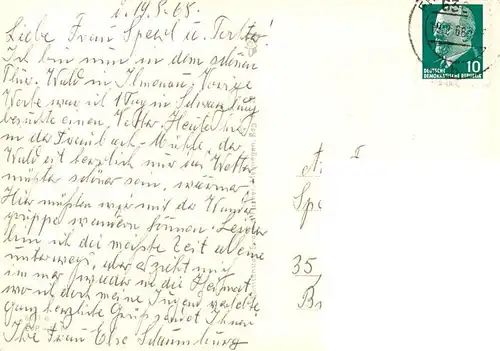 i. 19.5.68.
Liebe Frau Spezel u. Tochter!
Ich bin nun in dem schönen
Thür. Wald in Ilmenau. Vorige
Woche war ich 1 Tag in Schwarzburg
besuchte einen Vetter. Heute
in der Mühle, der
Wald ist herrlich nur das Wetter
müßte schöner sein, wärmer.
Hier müßten wir mit der Wander
gruppe wandern können. Leider
bin ich die meiste Zeit alleine
unterwegs, aber es zieht mich
immer wieder in die Heimat,
wo ich doch meine Jugend verlebte
Ganz herzliche Grüße sendet Ihnen
Ihre Frau Else Schaumburg
632
68
10
DEUTSCHE
DEMOKRATISCHE REPUBLIK
Spe
35
Br